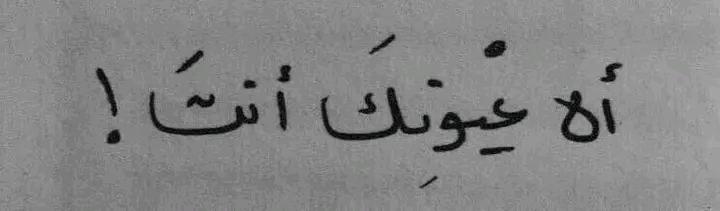 أه عيْونِكَ أنتَ !